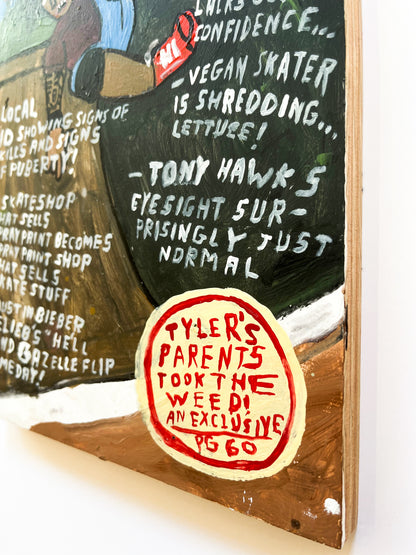 LACKS
CONFIDENCE...
-VEGAN SKATER
IS SHREDDING...
LETTUCE!
-TONY HAWKS
EYESIGHT SUR-
PRISINGLY JUST
NORMAL
LOCAL
ID SHOWING SIGNS OF
KILLS AND SIGNS
F PUBERTY!
SKATESHOP
HAT SELLS
PRAY PAINT BECOMES
PRAY PAINT SHOP
HAT SELLS
KATE STUFF
USTIN BIEBER
ELIEB'S "HELL
ND BAZELLE FLIP
MEDAY!
TYLER'S
PARENTS
TOOK THE
WEED!
AN EXCLUSIVE
PG 60